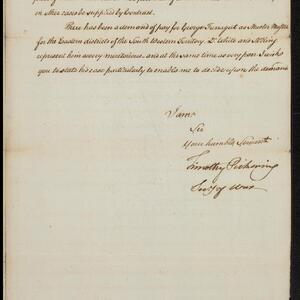 in other cases be supplied by Contract.
There has been a demand of pay for George Farragut as Muster Master
for the Eastern districts of the South Western Territory. Dr White and
represent him as very meritorious, and at the same time as very poor. I wish
you to state his case particularly to enable me to decide upon the demand.
I am
Sir
Your humble Servant
Timothy Pickering
Secy of War